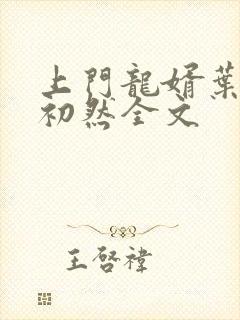 上門龍婿葉
初然全文
王啓禕